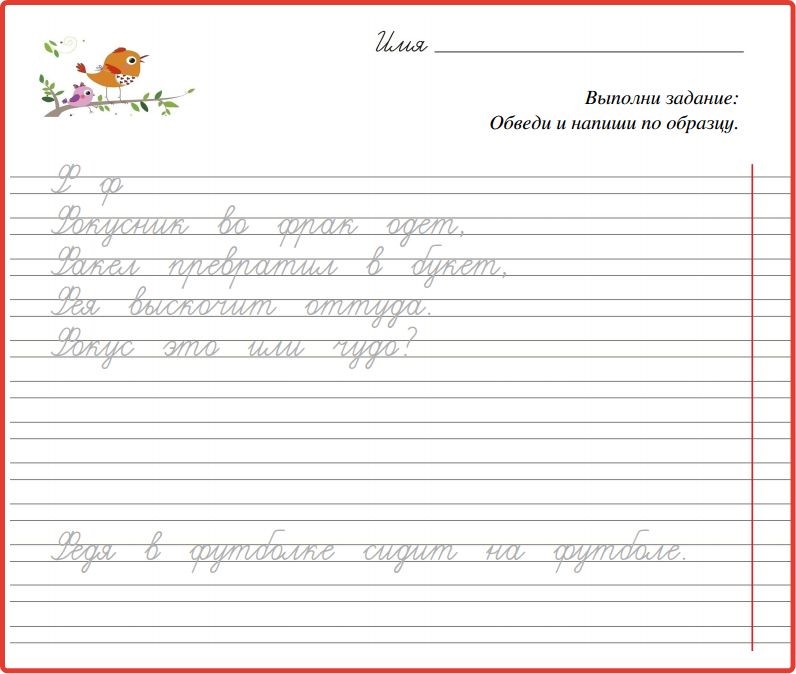 Имя
Выполни задание:
Обведи и напиши по образцу.
Ф ф
Фокусник во фрак одет,
Факел превратил в букет,
Фея выскочит оттуда.
Фокус это или чудо?
Федя в футболке сидит на футболе.